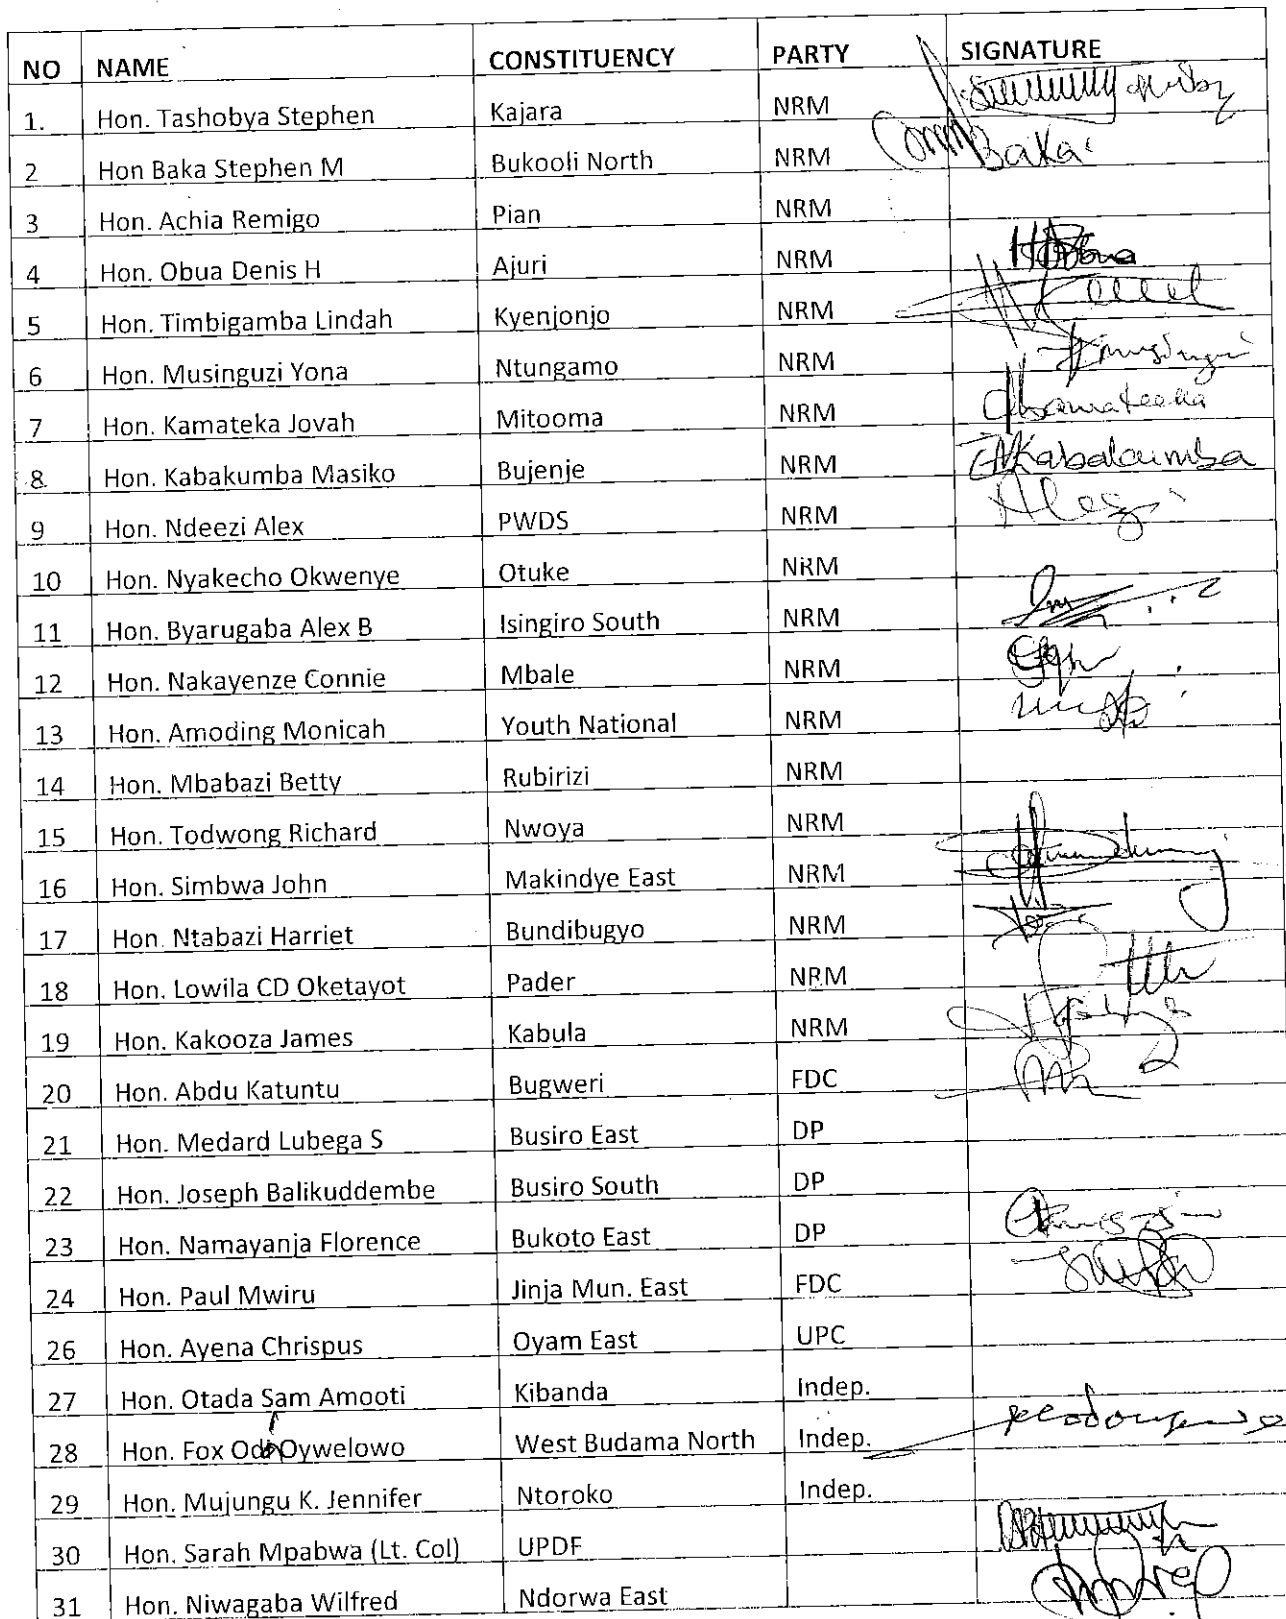 NO NAME CONSTITUENCY PARTY SIGNATURE
1. Hon. Tashobya Stephen Kajara NRM
2 Hon Baka Stephen M Bukooli North NRM Baka
3 Hon. Achia Remigo Pian NRM
4 Hon. Obua Denis H Ajuri NRM
5 Hon. Timbigamba Lindah Kyenjonjo NRM
6 Hon. Musinguzi Yona Ntungamo NRM
7 Hon. Kamateka Jovah Mitooma NRM
8. Hon. Kabakumba Masiko Bujenje NRM
9 Hon. Ndeezi Alex PWDS NRM
10 Hon. Nyakecho Okwenye Otuke NRM
11 Hon. Byarugaba Alex B Isingiro South NRM
12 Hon. Nakayenze Connie Mbale NRM
13 Hon. Amoding Monicah Youth National NRM
14 Hon. Mbabazi Betty Rubirizi NRM
15 Hon. Todwong Richard Nwoya NRM
16 Hon. Simbwa John Makindye East NRM
17 Hon. Ntabazi Harriet Bundibugyo NRM
18 Hon. Lowila CD Oketayot Pader NRM
19 Hon. Kakooza James Kabula NRM
20 Hon. Abdu Katuntu Bugweri FDC
21 Hon. Medard Lubega S Busiro East DP
22 Hon. Joseph Balikuddembe Busiro South DP
23 Hon. Namayanja Florence Bukoto East DP
24 Hon. Paul Mwiru Jinja Mun. East FDC
26 Hon. Ayena Chrispus Oyam East UPC
27 Hon. Otada Sam Amooti Kibanda Indep.
28 Hon. Fox Odoi Oywelowo West Budama North Indep.
29 Hon. Mujungu K. Jennifer Ntoroko Indep.
30 Hon. Sarah Mpabwa (Lt. Col) UPDF
31 Hon. Niwagaba Wilfred Ndorwa East